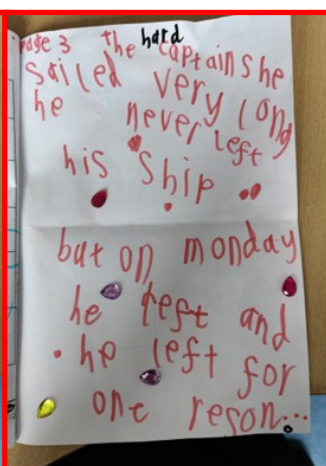 page 3 the hard captain she
sailed very long
he never left
his ship
but on monday
he left and
he left for
one reson...